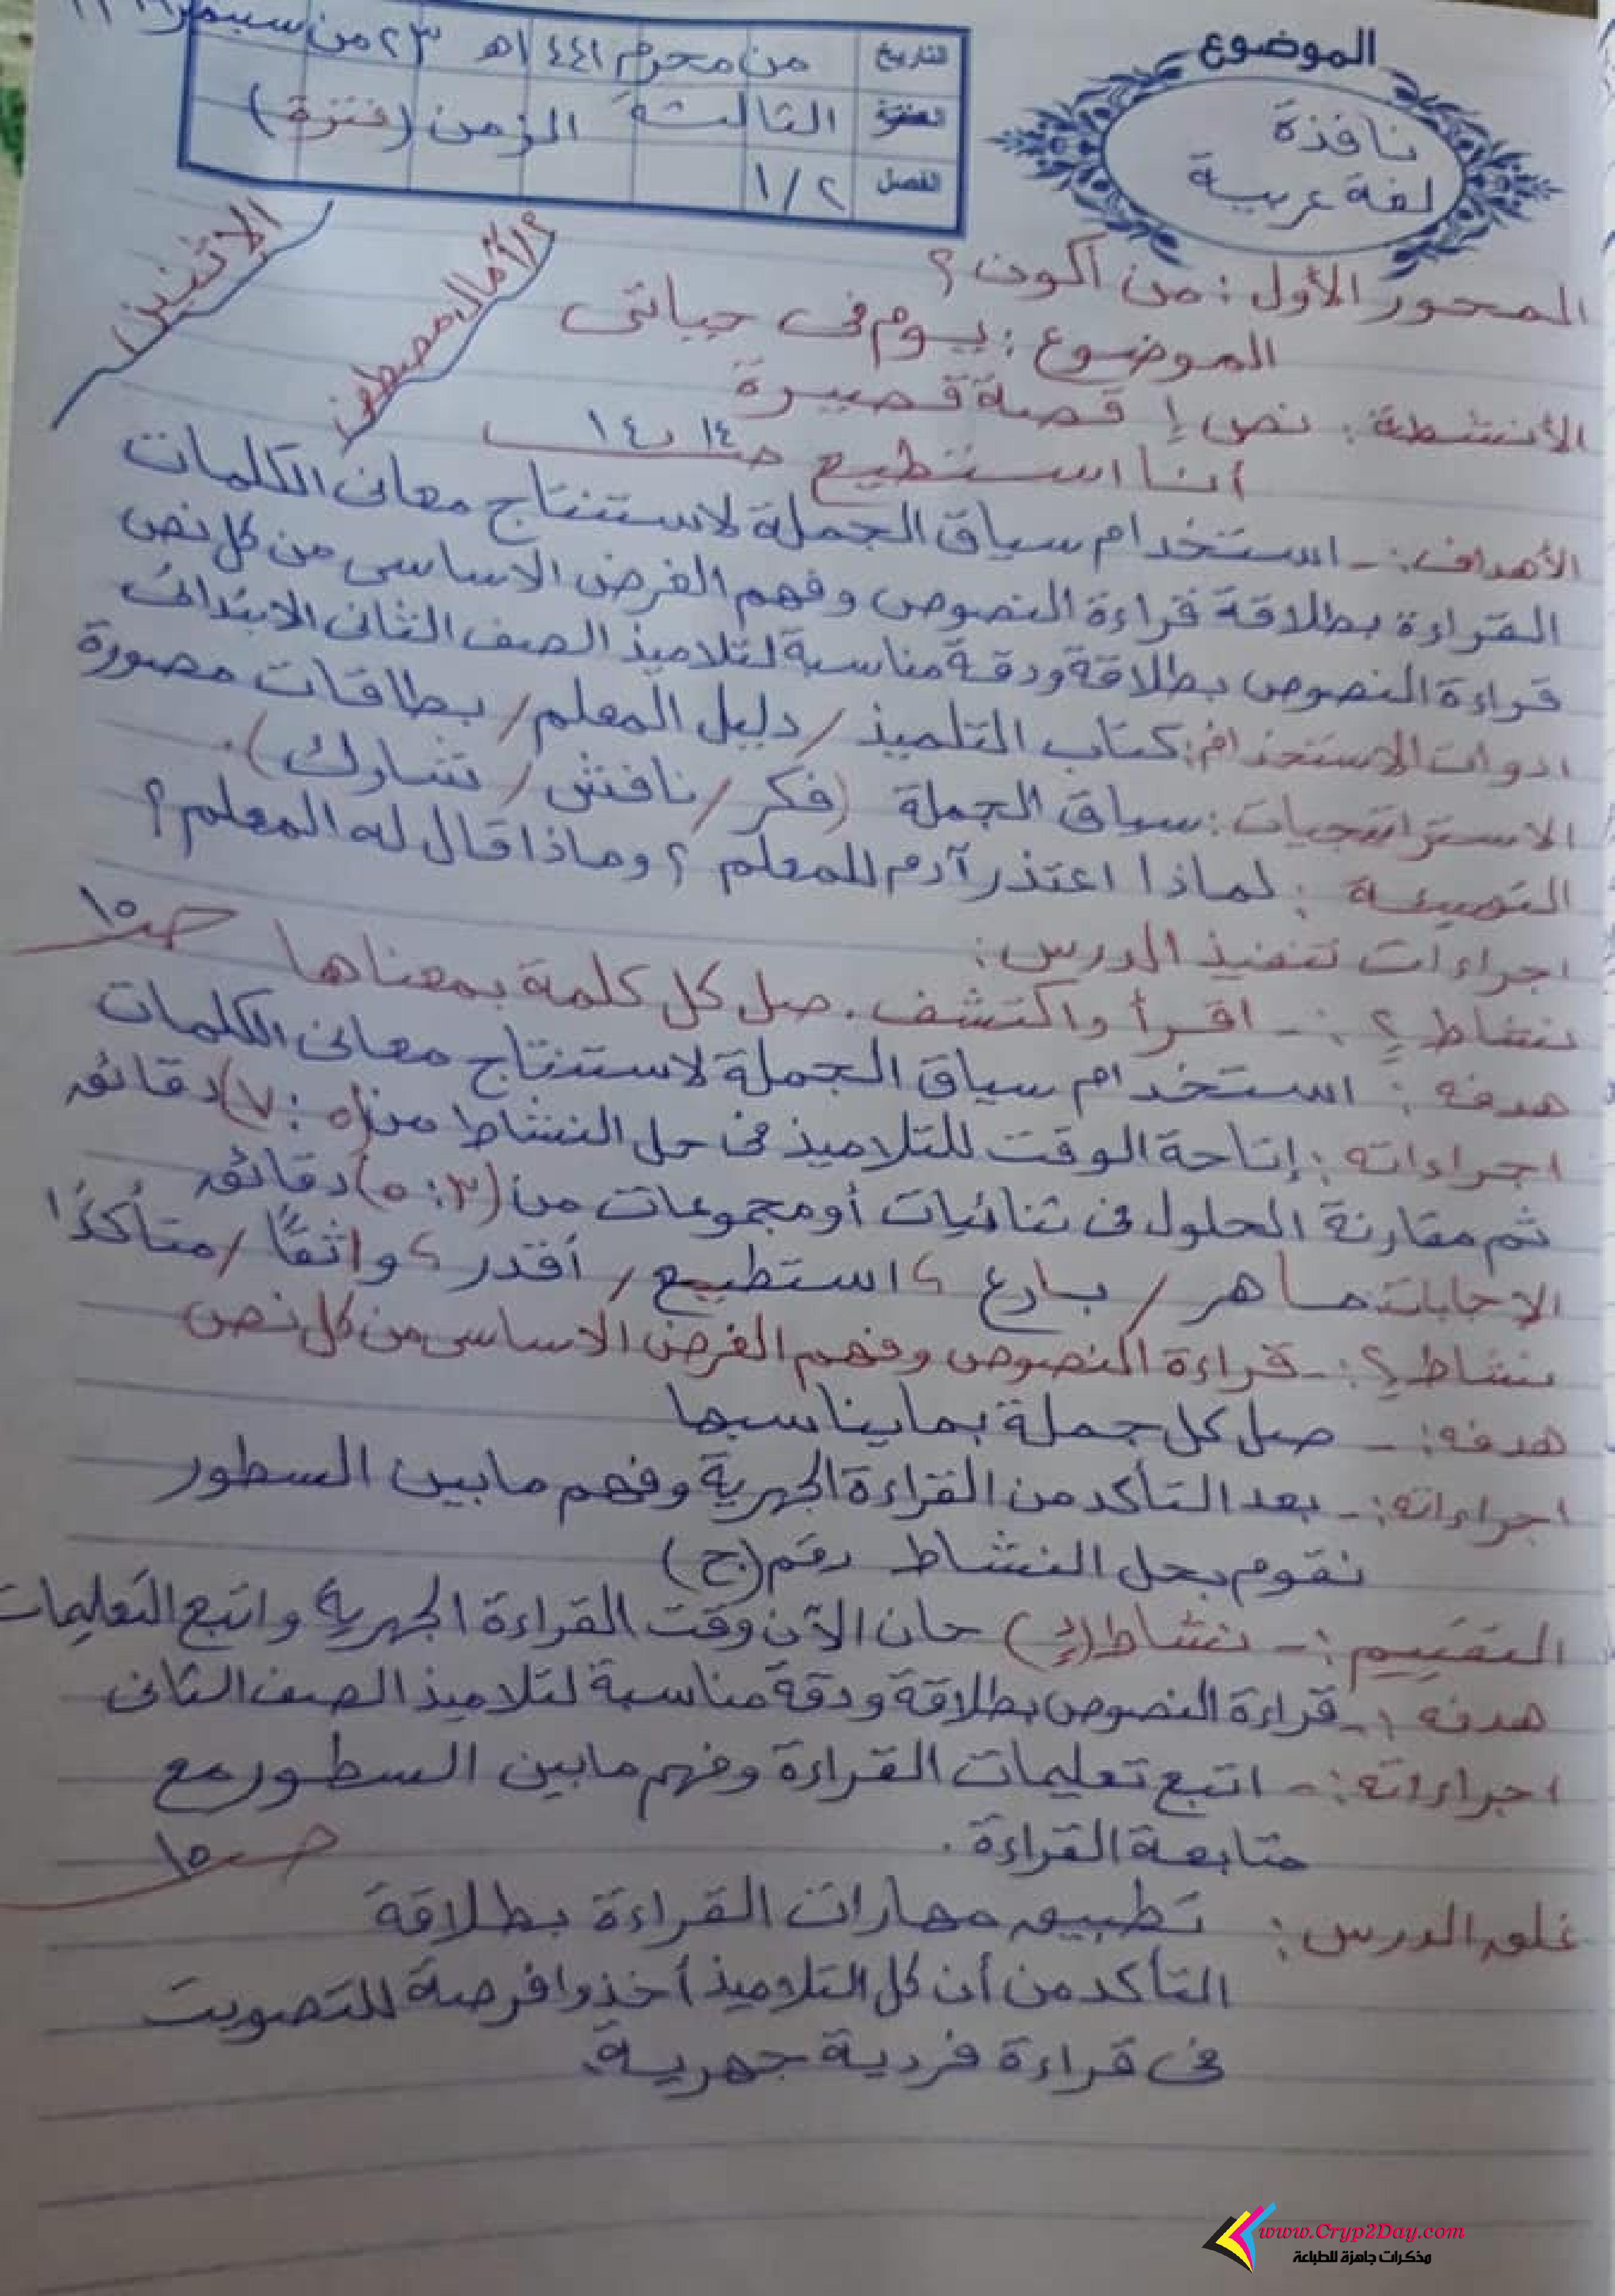 الموضوع
نافذة
لغة عربية
التاريخ من محرم ١٤٤١هـ ٢٣ من سبتمبر
الفترة الثالثة الزمن (فترة)
الفصل ١/٢
الاثنين
أ/ آمال مصطفى
المحور الأول : من أكون ؟
الموضوع : يوم فى حياتى
الأنشطة : نص ١ قصة قصيرة
أنا استطيع صـ ١٤ ، ١٤
الأهداف :- استخدام سياق الجملة لاستنتاج معانى الكلمات
القراءة بطلاقة قراءة النصوص وفهم الغرض الاساسى من كل نص
قراءة النصوص بطلاقة ودقة مناسبة لتلاميذ الصف الثانى الابتدائى
ادوات الاستخدام : كتاب التلميذ / دليل المعلم / بطاقات مصورة
الاستراتيجيات : سياق الجملة (فكر / ناقش / تشارك) .
التهيئة : لماذا اعتذر آدم للمعلم ؟ وماذا قال له المعلم ؟
اجراءات تنفيذ الدرس :
نشاط ٢ :- اقرأ واكتشف . صل كل كلمة بمعناها صـ ١٥
هدفه : استخدام سياق الجملة لاستنتاج معانى الكلمات
اجراءاته : إتاحة الوقت للتلاميذ فى حل النشاط من (٥ : ٧) دقائق
ثم مقارنة الحلول فى ثنائيات أو مجموعات من (٣ : ٥) دقائق
الاجابات ماهر / بارع ، استطيع / أقدر ، واثقًا / متأكدًا
نشاط :- قراءة النصوص وفهم الغرض الاساسى من كل نص
هدفه :- صل كل جملة بما يناسبها
اجراءاته :- بعد التأكد من القراءة الجهرية وفهم ما بين السطور
نقوم بحل النشاط رقم (ج)
التقييم :- نشاط (د) حان الآن وقت القراءة الجهرية واتبع التعليمات
هدفه :- قراءة النصوص بطلاقة ودقة مناسبة لتلاميذ الصف الثانى
اجراءاته :- اتبع تعليمات القراءة وفهم ما بين السطور مع
متابعة القراءة . صـ ١٥
غلق الدرس : تطبيق مهارات القراءة بطلاقة
التأكد من أن كل التلاميذ أخذوا فرصة للتصويت
فى قراءة فردية جهرية
www.Cryp2Day.com
مذكرات جاهزة للطباعة